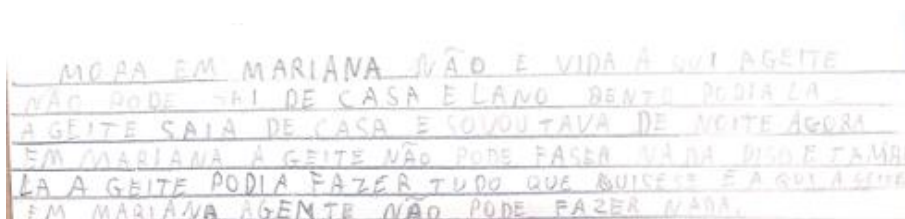 MORA EM MARIANA NÃO E VIDA A QUI AGEITE
NÃO PODE SAI DE CASA E LANO BENTO PODIA LA
A GEITE SAIA DE CASA E SOVOUTAVA DE NOITE AGORA
EM MARIANA A GEITE NÃO PODE FASER NADA DISO E TAMBE
LA A GEITE PODIA FAZER TUDO QUE QUISESE E A QUI A GEITE
EM MARIANA AGEMTE NÃO PODE FAZER NADA.